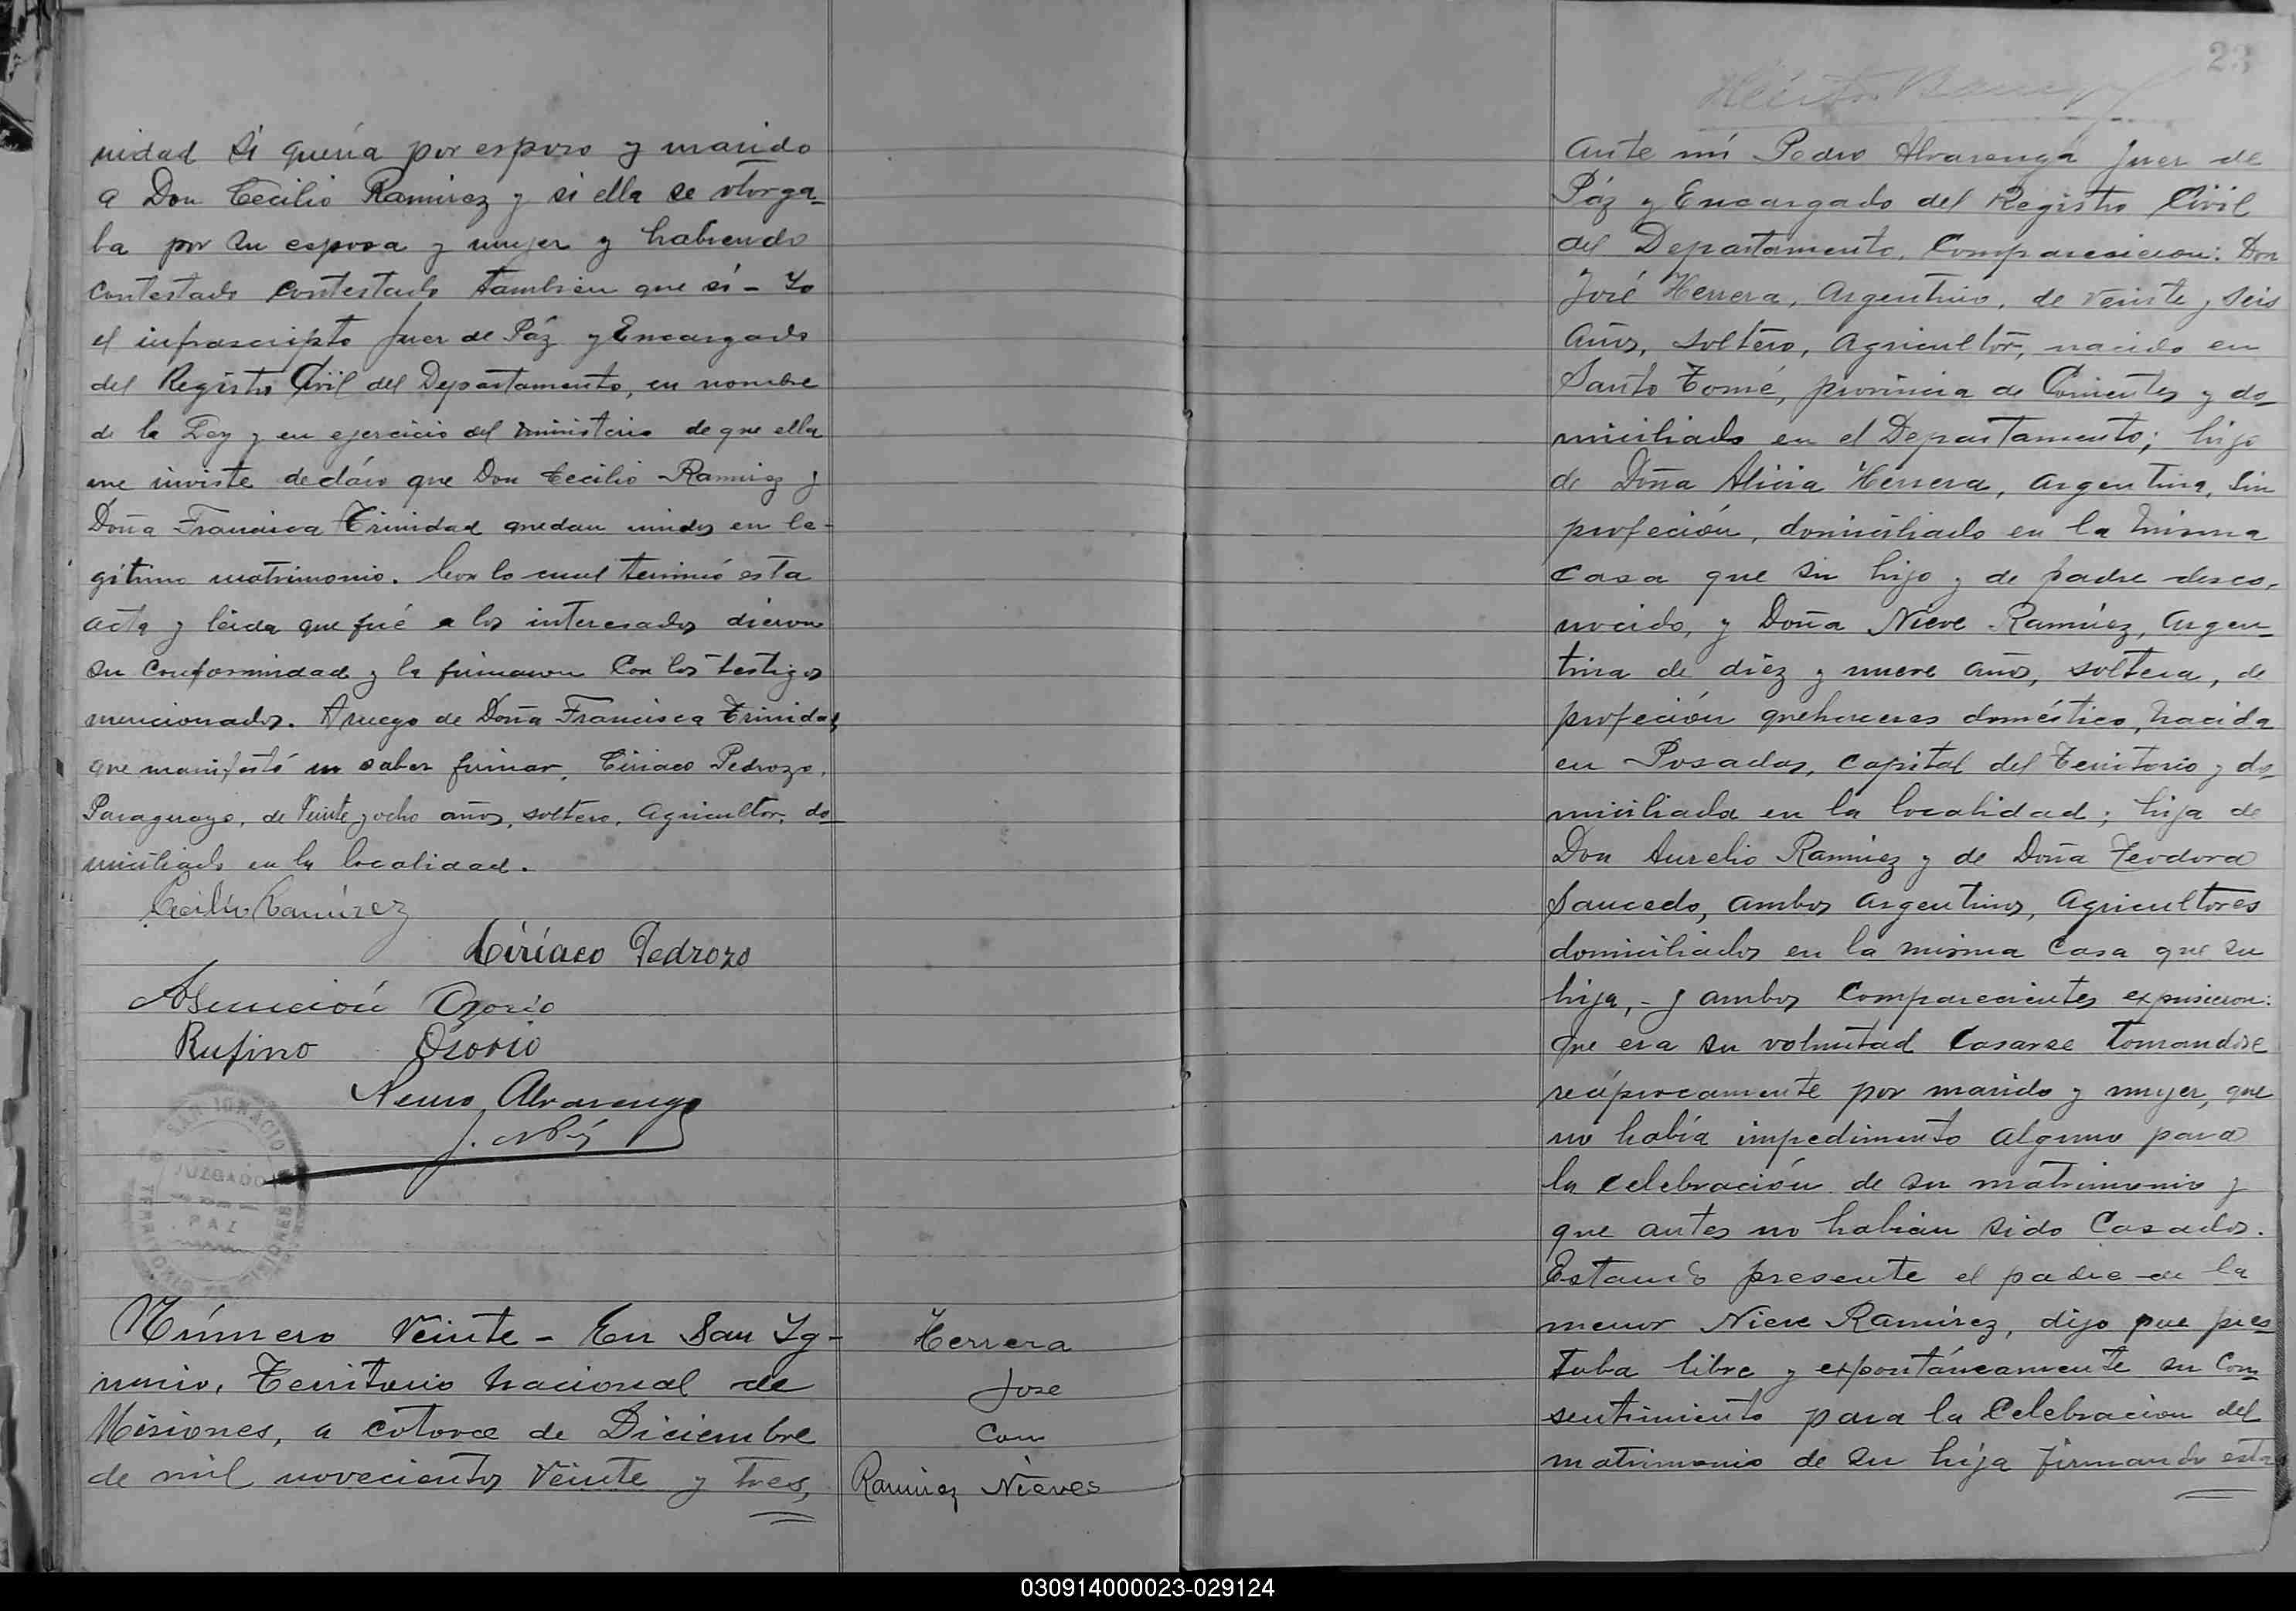 nidad si quería por esposo y marido
a Don Cecilio Ramirez y si ella se otorga-
ba por su esposa y mujer y habiendo
contestado contestado tambien que sí - Yo
el infrascripto Juez de Páz y Encargado
del Registro Civil del Departamento, en nombre
de la Ley y en ejercicio del ministerio de que ella
me inviste decláro que Don Cecilio Ramirez y
Doña Francisca Trinidad quedan unidos en le-
gítimo matrimonio. Con lo cual terminó esta
acta y leida que fué a los interesados dieron
su conformidad y la firmaron con los testigos
mencionados. A ruego de Doña Francisca Trinidad,
que manifestó no saber firmar, Ciriaco Pedrozo,
Paraguayo, de Veinte y ocho años, soltero, Agricultor, do-
miciliado en la localidad.
Cecilio Ramirez
Ciríaco Pedrozo
Asunción Ozorio
Rufino Osorio
Alvarenga
J. de Páz
SAN IGNACIO
JUZGADO
DE
PAZ
TERRITORIO DE MISIONES
Número Veinte - En San Ig-
nacio, Territorio Nacional de
Misiones, a catorce de Diciembre
de mil novecientos Veinte y tres,
Herrera
Jose
Con
Ramirez Nieves
23
Ante mí Pedro Alvarenga Juez de
Páz y Encargado del Registro Civil
del Departamento, Comparecieron: Don
José Herrera, Argentino, de veinte y seis
años, soltero, Agricultor, nacido en
Santo Tomé, provincia de Corrientes y do-
miciliado en el Departamento; hijo
de Doña Alicia Herrera, Argentina, sin
profeción, domiciliado en la misma
casa que su hijo y de padre desco-
nocido, y Doña Nieve Ramírez, Argen-
tina de diéz y nueve años, soltera, de
profeción quehaceres doméstico, nacida
en Posadas, Capital del Territorio y do-
miciliada en la localidad; hija de
Don Aurelio Ramírez y de Doña Teodora
Saucedo, ambos Argentinos, Agricultores
domiciliados en la misma Casa que su
hija, - y ambos Comparecientes expusieron:
que era su voluntad Casarse tomandose
recíprocamente por marido y mujer, que
no había impedimento alguno para
la celebración de su matrimonio y
que antes no habían sido Casados.
Estando presente el padre de la
menor Nieve Ramírez, dijo que pres-
taba libre y expontáneamente su Con-
sentimiento para la Celebración del
matrimonio de su hija firmando esta
030914000023-029124